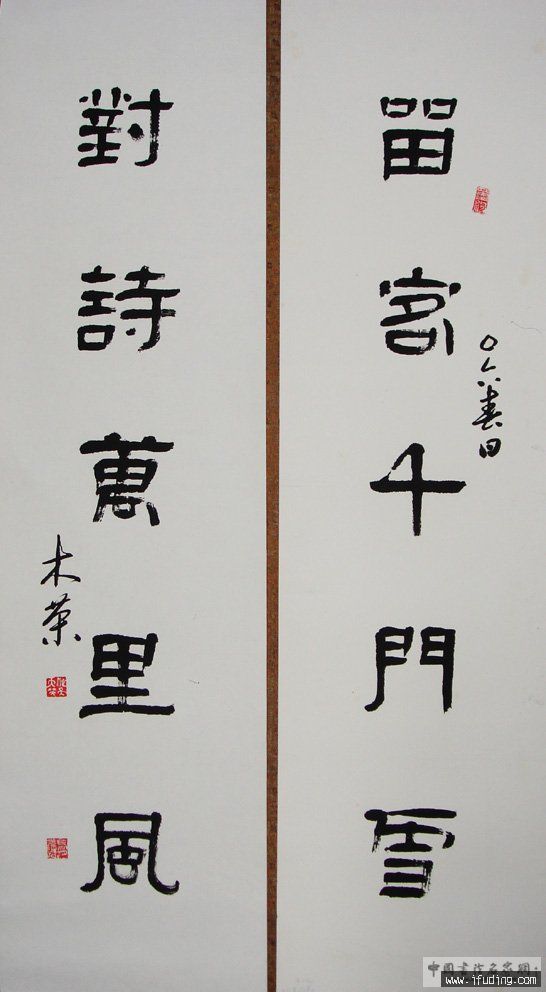 畱客千門雪
〇六春日
對詩萬里風
木葉
中國書法名家網
www.ifuding.com